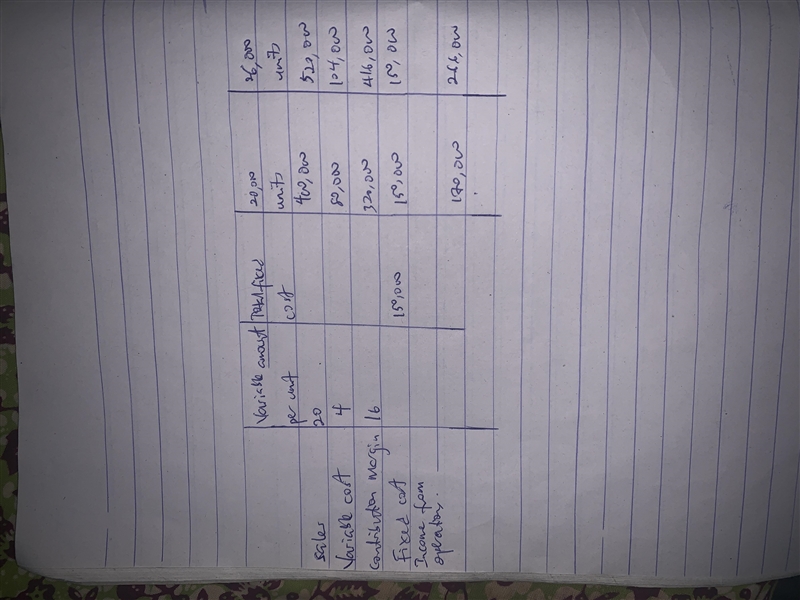 Variable amount Total fixed 20,000 26,000
per unit cost units units
Sales 20 400,000 520,000
Variable cost 4 80,000 104,000
Contribution Margin 16 320,000 416,000
Fixed cost 150,000 150,000 150,000
Income from
operation. 170,000 266,000